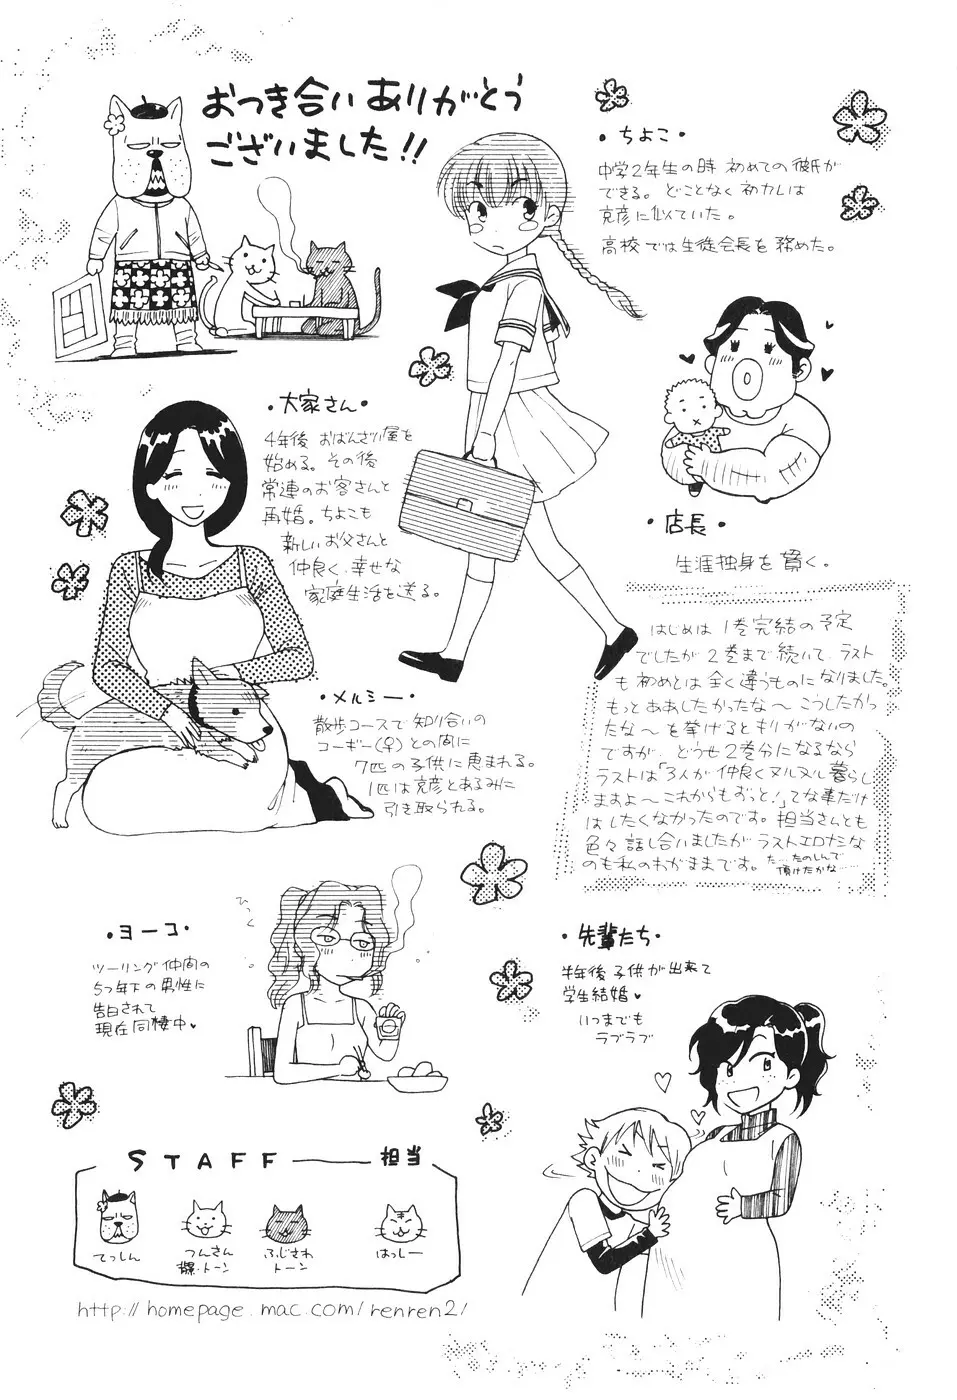 おつき合い ありがとう
ございました!!
・ちよこ・
中学2年生の時 初めての彼氏が
できる。どことなく初カレは
克彦に似ていた。
高校では生徒会長を務めた。
・大家さん・
4年後 おばんざい屋を
始める。その後
常連のお客さんと
再婚。ちよこも
新しいお父さんと
仲良く、幸せな
家庭生活を送る。
・店長・
生涯独身を貫く。
・メルシー・
散歩コースで知り合いの
コーギー(♀)との間に
7匹の子供に恵まれる。
1匹は克彦とあるみに
引き取られる。
はじめは1巻完結の予定
でしたが2巻まで続いて、ラスト
も初めとは全く違うものになりました。
もっとああしたかったな〜 こうしたかっ
たな〜を挙げるとキリがないの
ですが、どうせ2巻分になるなら
ラストは「3人が仲良くヌルヌル暮らし
ますよ〜これからもずっと!」てな事だけ
はしたくなかったのです。担当さんとも
色々話し合いましたがラストエロナシな
のも私のわがままです。た…たのしんで
頂けたかな……
・ヨーコ・
ツーリング仲間の
5つ年下の男性に
告白されて
現在同棲中♥
ひっく
・先輩たち・
半年後 子供が出来て
学生結婚♥
いつまでも
ラブラブ
STAFF ── 担当
てっしん
つんさん
背景・トーン
ふじさわ
トーン
はっしー
http://homepage.mac.com/renren2/